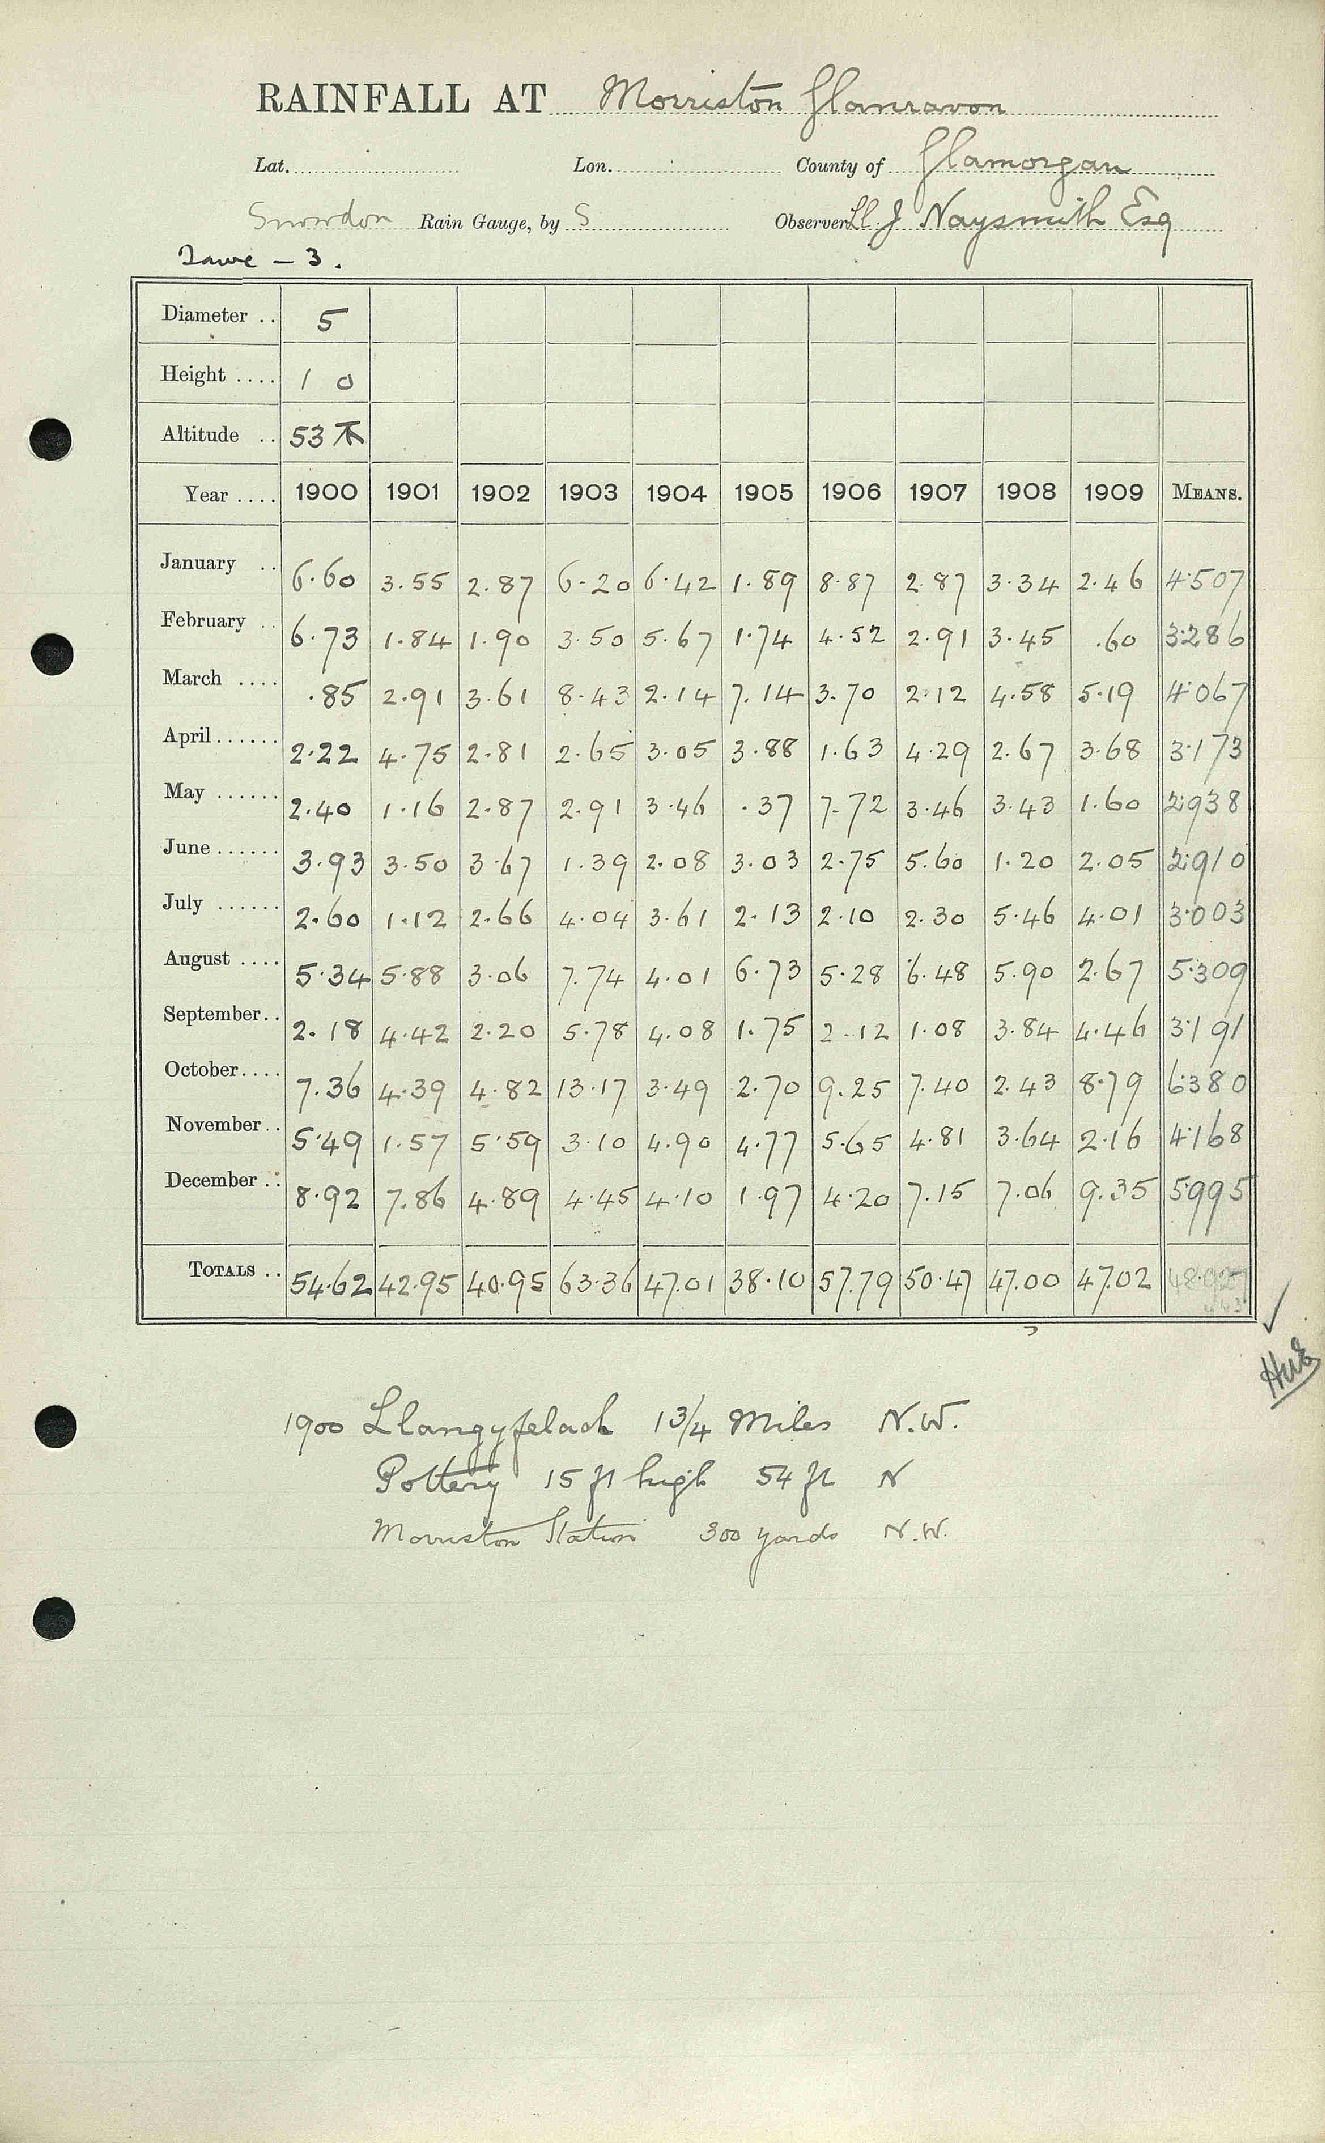 RAINFALL AT Morriston Glanravon
Lat. Lon. County of Glamorgan
Snowdon Rain Gauge, by S Observer Ll J Naysmith Esq
Tawe - 3.
Diameter .. 5
Height .... 1 0
Altitude .. 53
Year .... 1900 1901 1902 1903 1904 1905 1906 1907 1908 1909 MEANS.
January .. 6.60 3.55 2.87 6.20 6.42 1.89 8.87 2.87 3.34 2.46 4.507
February .. 6.73 1.84 1.90 3.50 5.67 1.74 4.52 2.91 3.45 .60 3.286
March .... .85 2.91 3.61 8.43 2.14 7.14 3.70 2.12 4.58 5.19 4.067
April...... 2.22 4.75 2.81 2.65 3.05 3.88 1.63 4.29 2.67 3.68 3.173
May ...... 2.40 1.16 2.87 2.91 3.46 .37 7.72 3.46 3.43 1.60 2.938
June ...... 3.93 3.50 3.67 1.39 2.08 3.03 2.75 5.60 1.20 2.05 2.910
July ...... 2.60 1.12 2.66 4.04 3.61 2.13 2.10 2.30 5.46 4.01 3.003
August .... 5.34 5.88 3.06 7.74 4.01 6.73 5.28 6.48 5.90 2.67 5.309
September.. 2.18 4.42 2.20 5.78 4.08 1.75 2.12 1.08 3.84 4.46 3.191
October.... 7.36 4.39 4.82 13.17 3.49 2.70 9.25 7.40 2.43 8.79 6.380
November.. 5.49 1.57 5.59 3.10 4.90 4.77 5.65 4.81 3.64 2.16 4.168
December .. 8.92 7.86 4.89 4.45 4.10 1.97 4.20 7.15 7.06 9.35 5.995
TOTALS .. 54.62 42.95 40.95 63.36 47.01 38.10 57.79 50.47 47.00 47.02 48.927
1900 Llangyfelach 1 3/4 Miles N.W.
Pottery 15 ft high 54 ft N
Morriston Station 300 yards N.W.